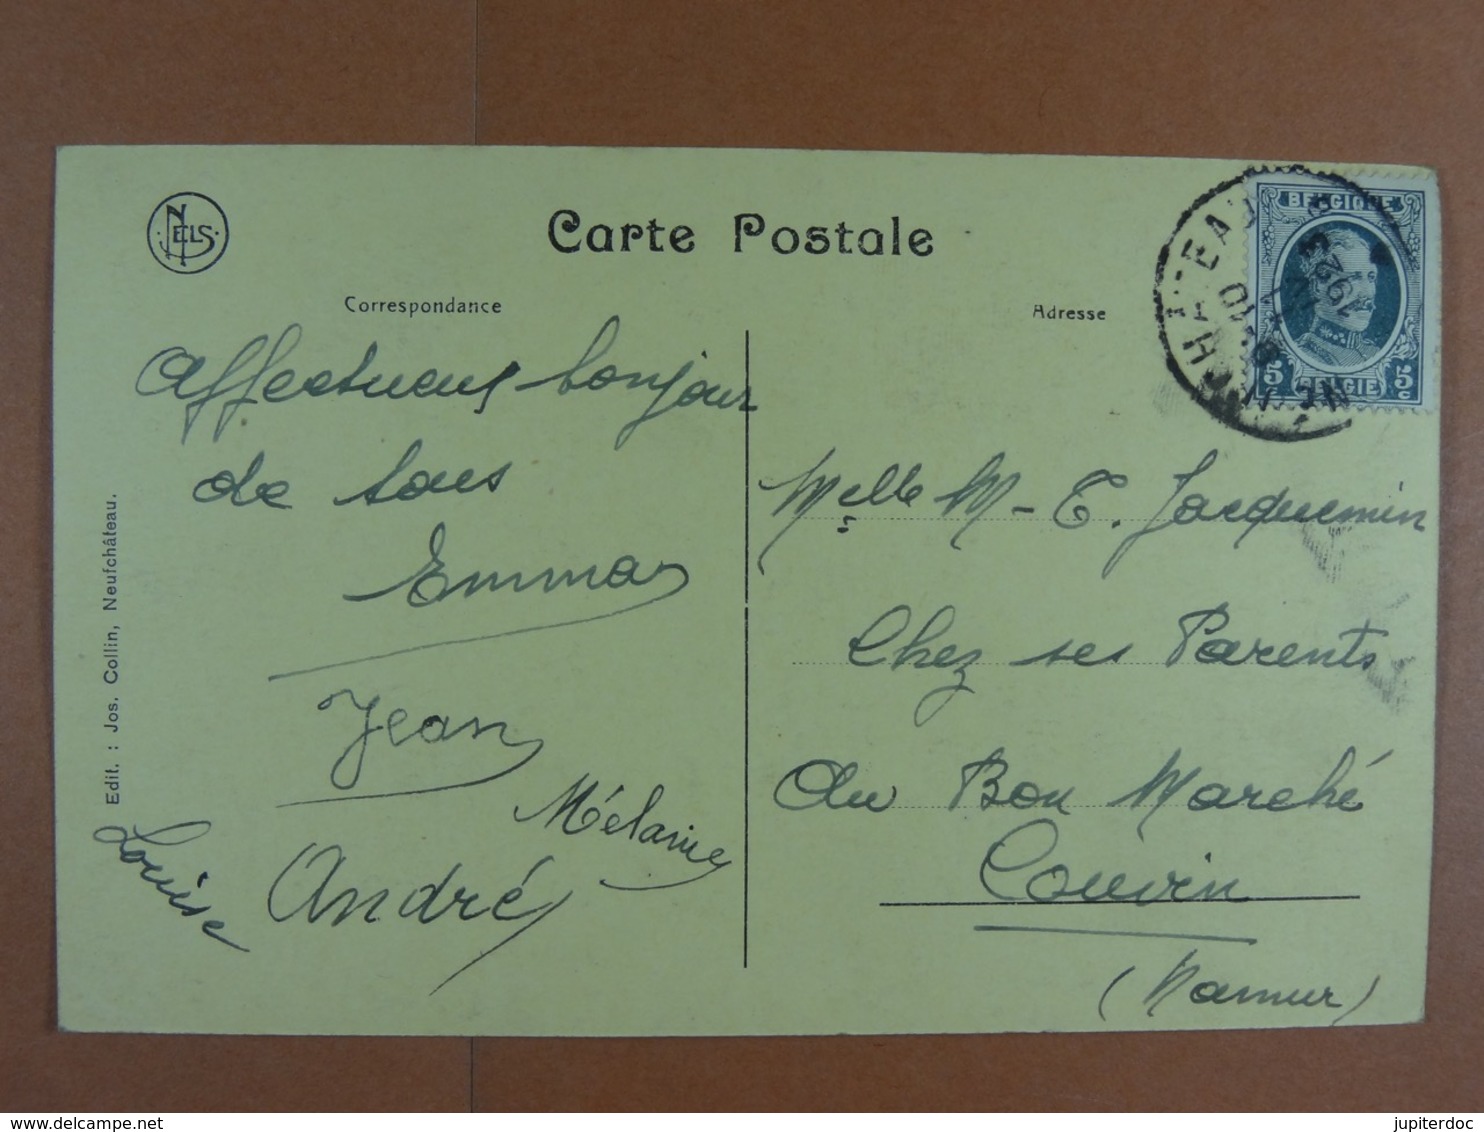 NELS
Carte Postale
Correspondance
Adresse
BELGIQUE
5 BELGIE 5
c c
1923
Affectueux bonjour
de tous
Emma
Jean
Mélanie
André
Louise
Edit. : Jos. Collin, Neufchâteau.
Melle M-T. Jacquemin
Chez ses Parents
Au Bon Marché
Couvin
(Namur)
www.delcampe.net
jupiterdoc